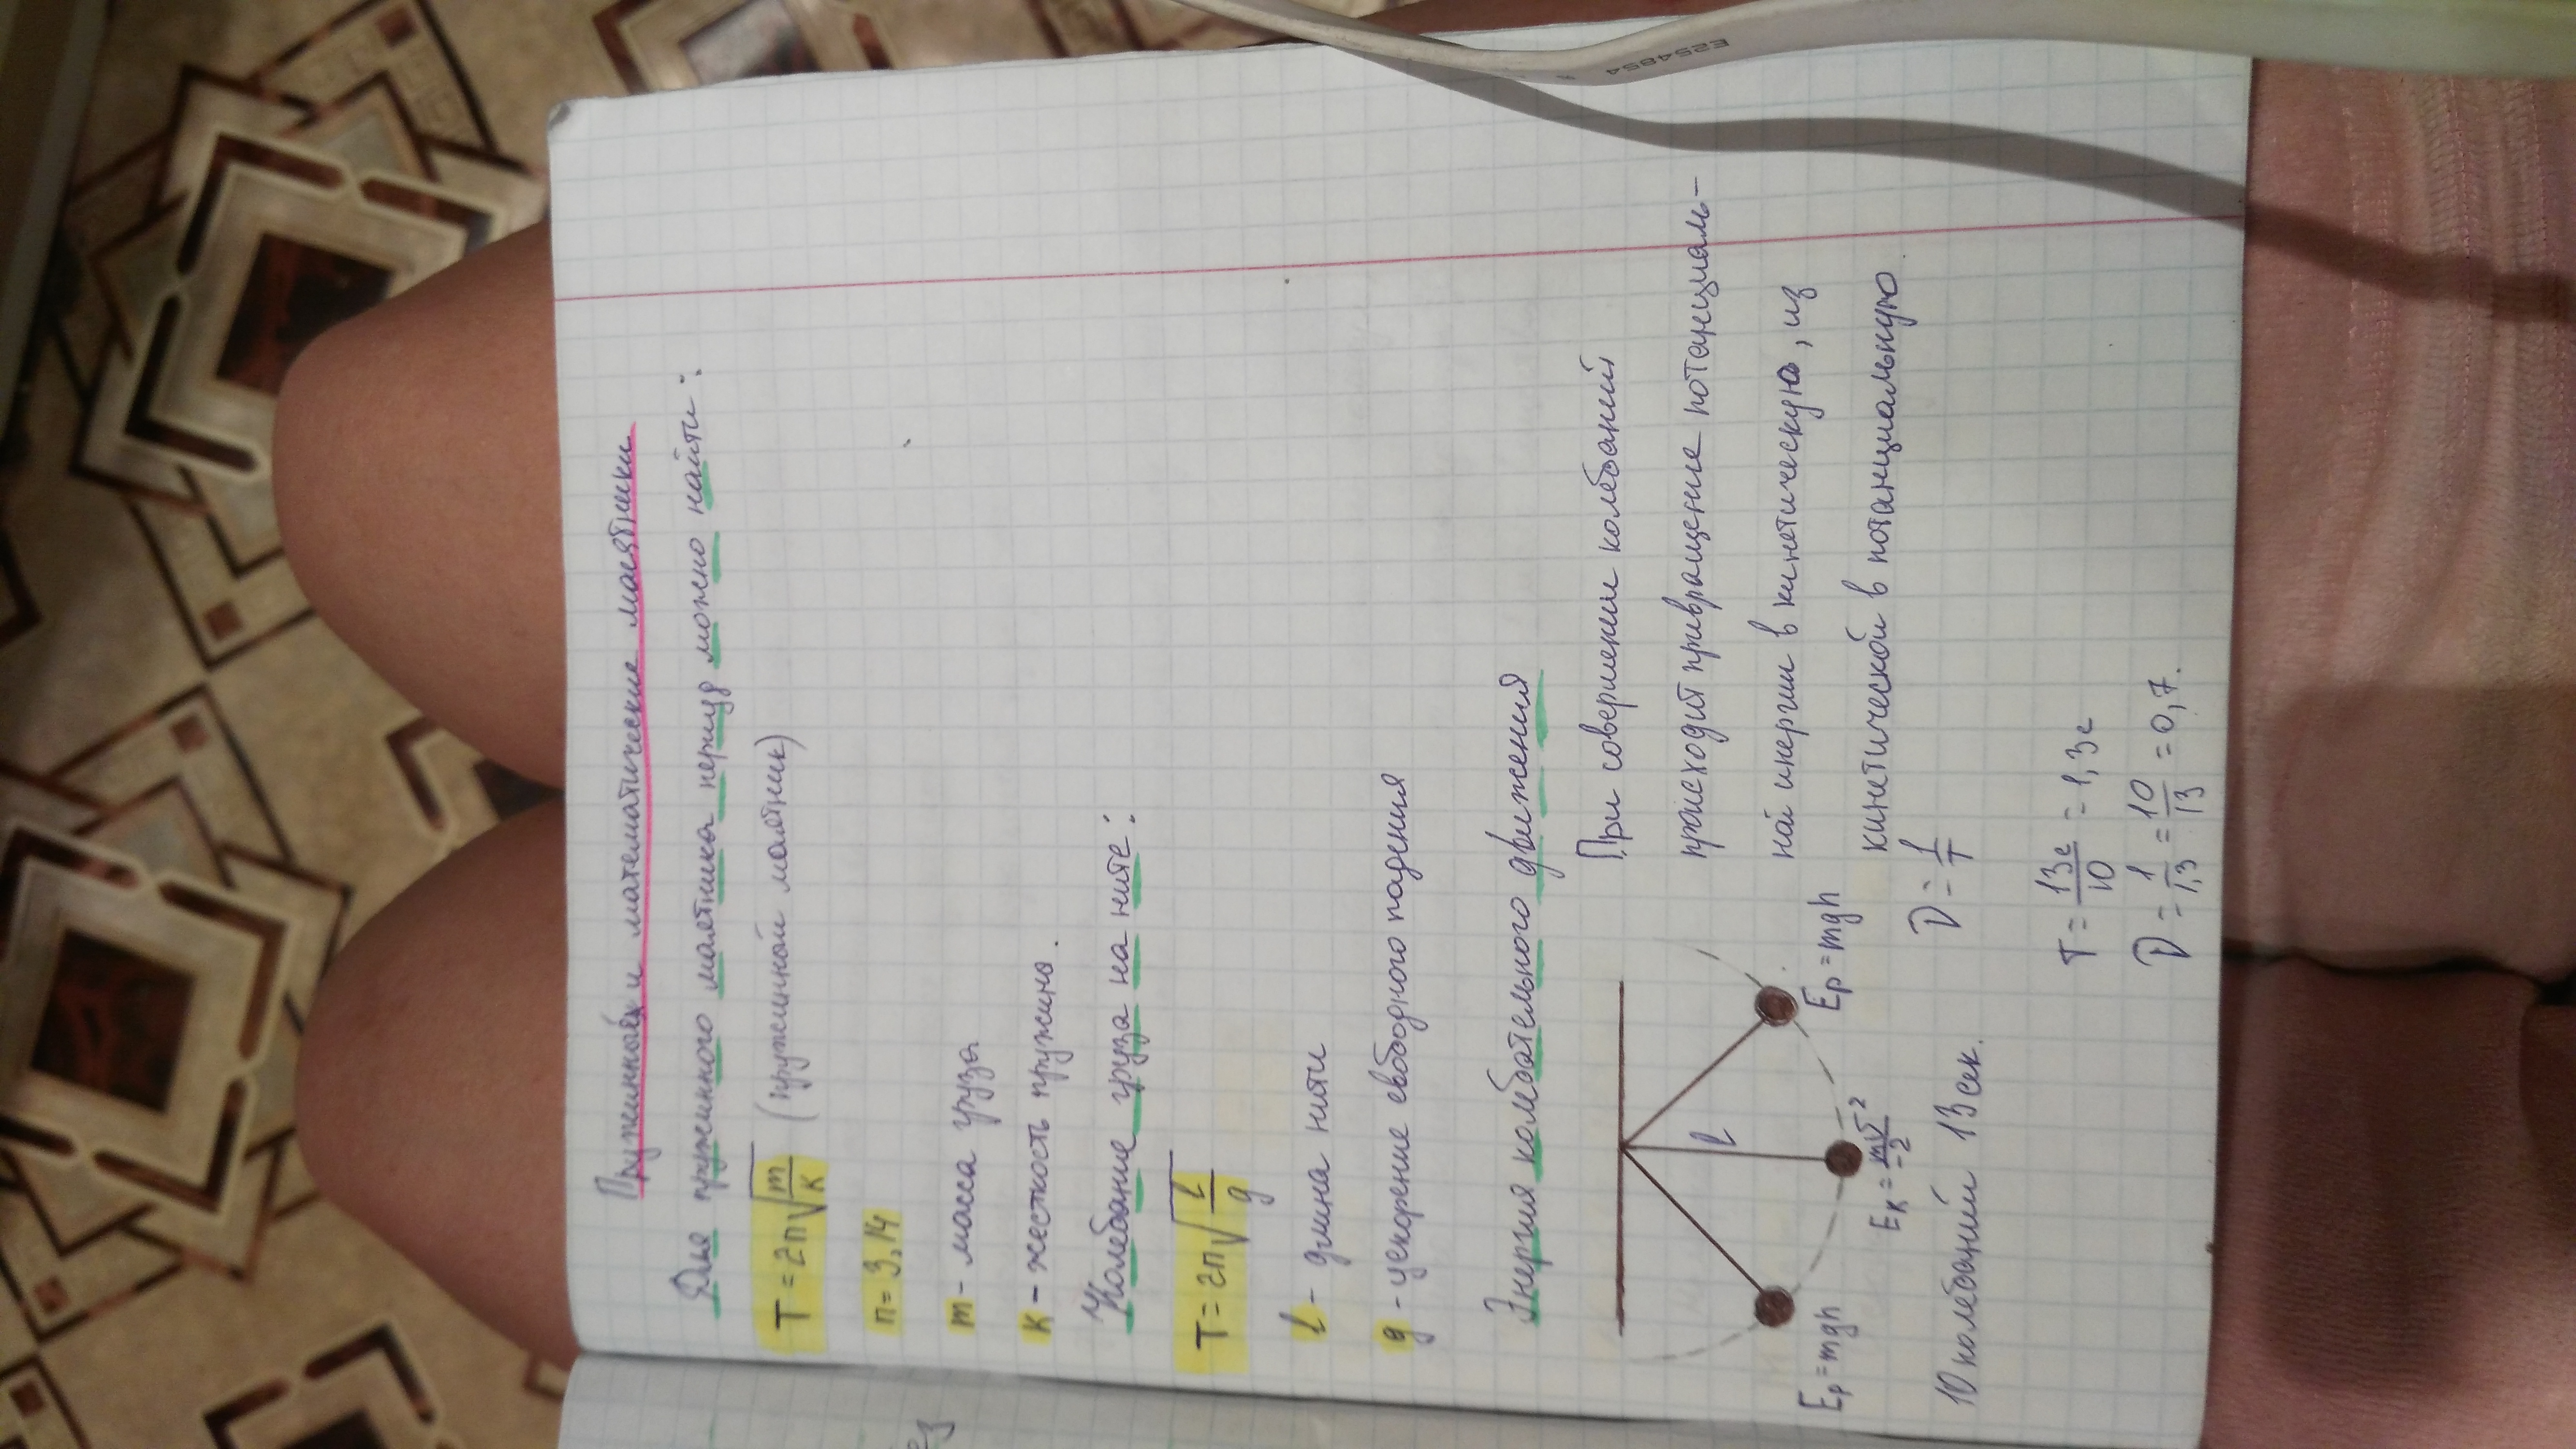 Пружинный и математические маятники
Для пружинного маятника период можно найти:
T = 2π√m/k (пружиной маятник)
π = 3,14
m - масса груза
к - жесткость пружина.
Колебание груза на ните:
T = 2π√l/g
l - длина нити
g - ускорение свободного падения
Энергия колебательного движения
При совершении колебаний
происходит превращение потенциаль-
ной инергии в кинетическую, из
кинетической в потанциальную
l
Ep = mgh
Eк = mv²/2
Ep = mgh
D = 1/T
10 колебаний 13 сек.
T = 13c/10 = 1,3c
D = 1/1,3 = 10/13 = 0,7.
E254854